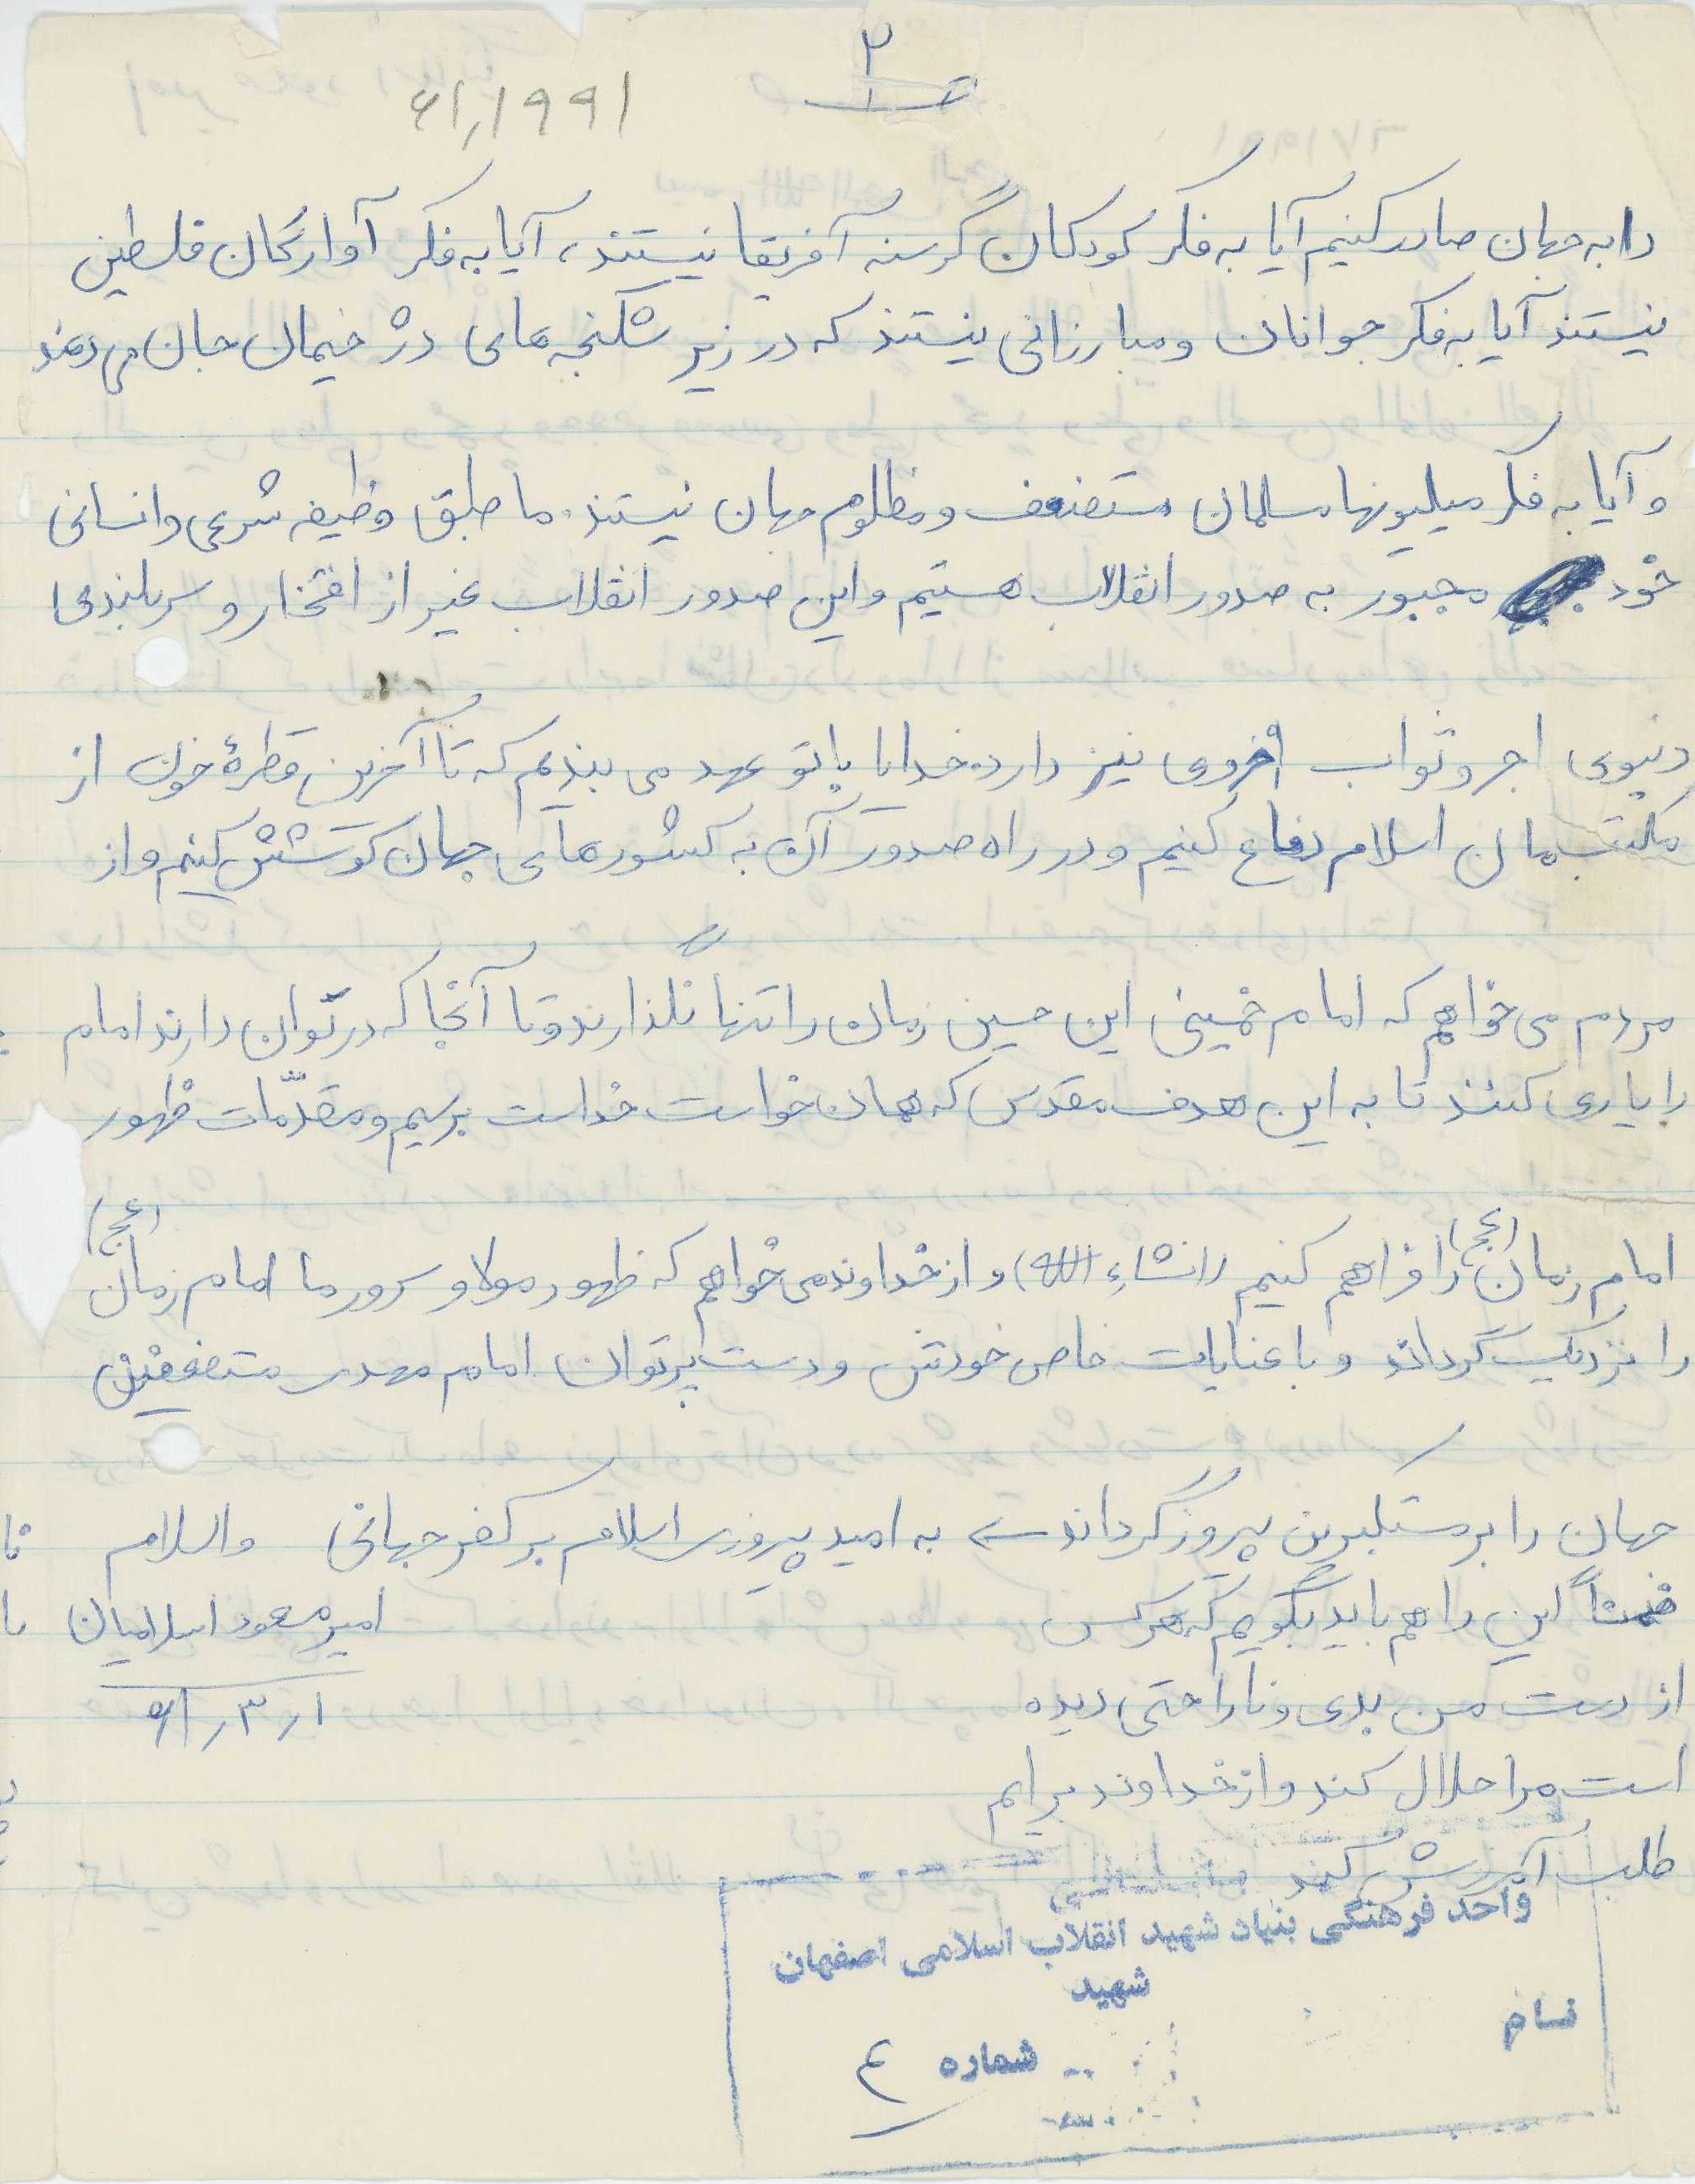 ۲
۶۱/۱۹۹۱
را به جهان صادر کنیم آیا به فکر کودکان گرسنه آفریقا نیستند، آیا به فکر آوارگان فلسطین
نیستند آیا به فکر جوانان و مبارزانی نیستند که در زیر شکنجه های دژخیمان جان می دهند
و آیا به فکر میلیونها مسلمان مستضعف و مظلوم جهان نیستند. ما طبق وظیفه شرعی و انسانی
خود مجبور به صدور انقلاب هستیم و این صدور انقلاب غیر از افتخار و سربلندی
دنیوی اجر و ثواب اخروی نیز دارد. خدایا با تو عهد می بندیم که تا آخرین قطرهٔ خون از
مکتب مان اسلام دفاع کنیم و در راه صدور آن به کشورهای جهان کوشش کنیم و از
مردم می خواهم که امام خمینی این حسین زمان را تنها نگذارند و تا آنجا که در توان دارند امام
را یاری کنند تا به این هدف مقدس که همان خواست خداست برسیم و مقدّمات ظهور
امام زمان (عج) را فراهم کنیم (انشاء الله) و از خداوند می خواهم که ظهور مولا و سرور ما امام زمان (عج)
را نزدیک گرداند و با عنایات خاص خودش و دست پرتوان امام مهدی مستضعفین
جهان را بر مستکبرین پیروز گرداند به امید پیروزی اسلام بر کفر جهانی والسلام
ضمناً این را هم باید بگویم که هر کس
امیر مسعود اسلامیان
از دست من بدی و ناراحتی دیده
۶۱/۳/۱
است مرا حلال کند و از خداوند برایم
طلب آمرزش کند
واحد فرهنگی بنیاد شهید انقلاب اسلامی اصفهان
شهید
نام
شماره ۴